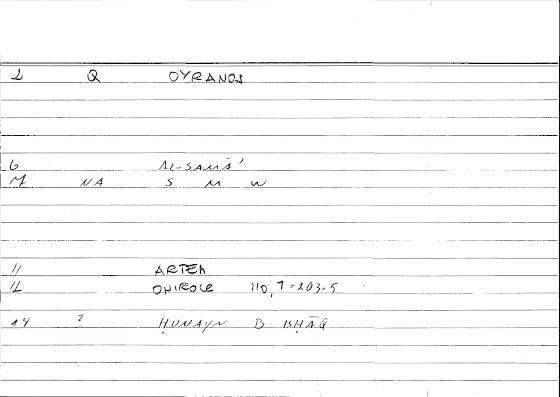 2 Q OYRANOS
6 AL-SAMĀ'
M NA S M W
11 ARTEM
12 ONIROCR 110,7=203.5
14 ? ḤUNAYN B ISḤĀQ